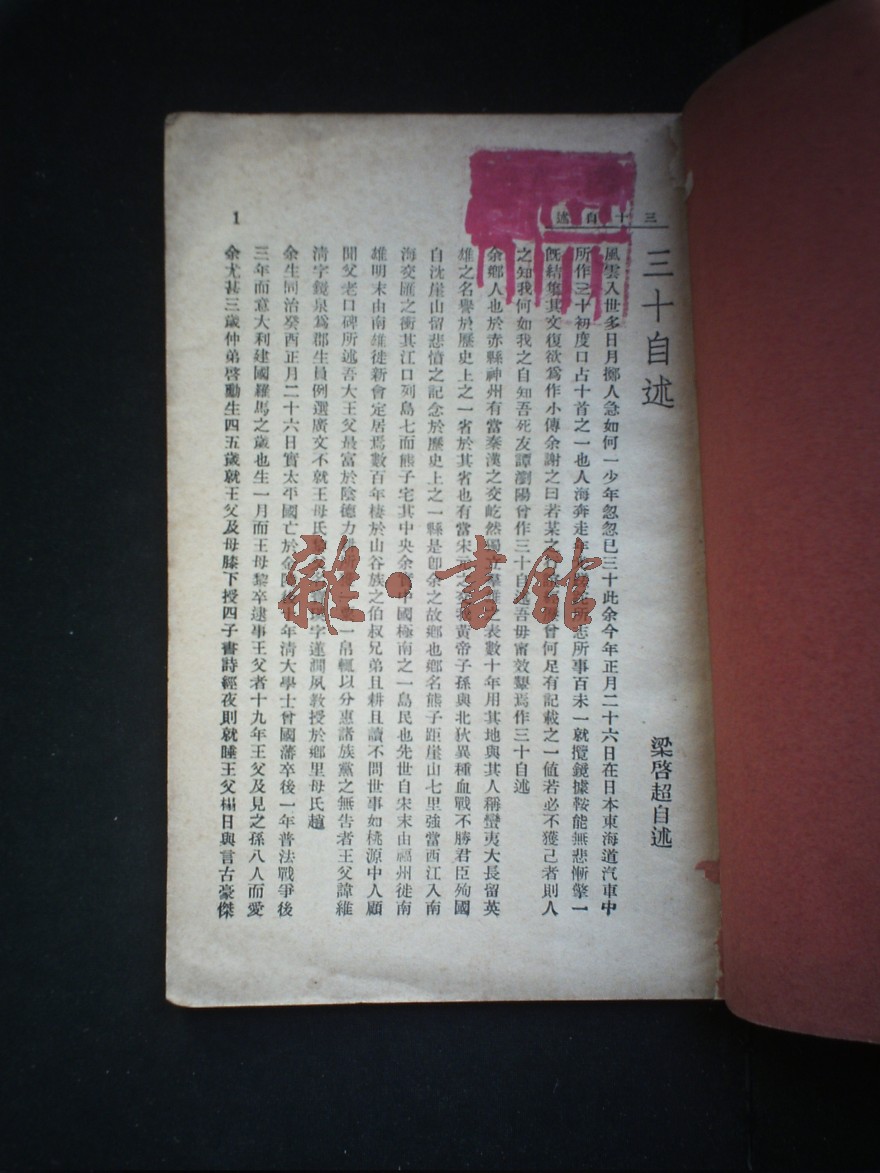 三十自述
三十自述
梁啓超自述
風雲入世多日月擲人急如何一少年忽忽已三十此余今年正月二十六日在日本東海道汽車中
所作三十初度口占十首之一也人海奔走所志所事百未一就攬鏡據鞍能無悲慚擎一
既結集其文復欲爲作小傳余謝之曰若某之曾何足有記載之一値若必不獲已者則人
之知我何如我之自知吾死友譚瀏陽曾作三十自述吾毋甯效顰焉作三十自述
余鄉人也於赤縣神州有當秦漢之交屹然獨立羣雄之表數十年用其地與其人稱蠻夷大長留英
雄之名譽於歷史上之一省於其省也有當宋元之交我黃帝子孫與北狄異種血戰不勝君臣殉國
自沈崖山留悲憤之記念於歷史上之一縣是卽余之故鄉也鄉名熊子距崖山七里強當西江入南
海交匯之衝其江口列島七而熊子宅其中央余中國極南之一島民也先世自宋末由福州徙南
雄明末由南雄徙新會定居焉數百年棲於山谷族之伯叔兄弟且耕且讀不問世事如桃源中人顧
聞父老口碑所述吾大王父最富於陰德力一帛輒以分惠諸族黨之無告者王父諱維
清字鏡泉爲郡生員例選廣文不就王母氏字蓮澗夙教授於鄉里母氏趙
余生同治癸酉正月二十六日實太平國亡於金陵後十年淸大學士曾國藩卒後一年普法戰爭後
三年而意大利建國羅馬之歲也生一月而王母黎卒逮事王父者十九年王父及見之孫八人而愛
余尤甚三歲仲弟啓勳生四五歲就王父及母膝下授四子書詩經夜則就睡王父榻日與言古豪傑
1
雜·書館